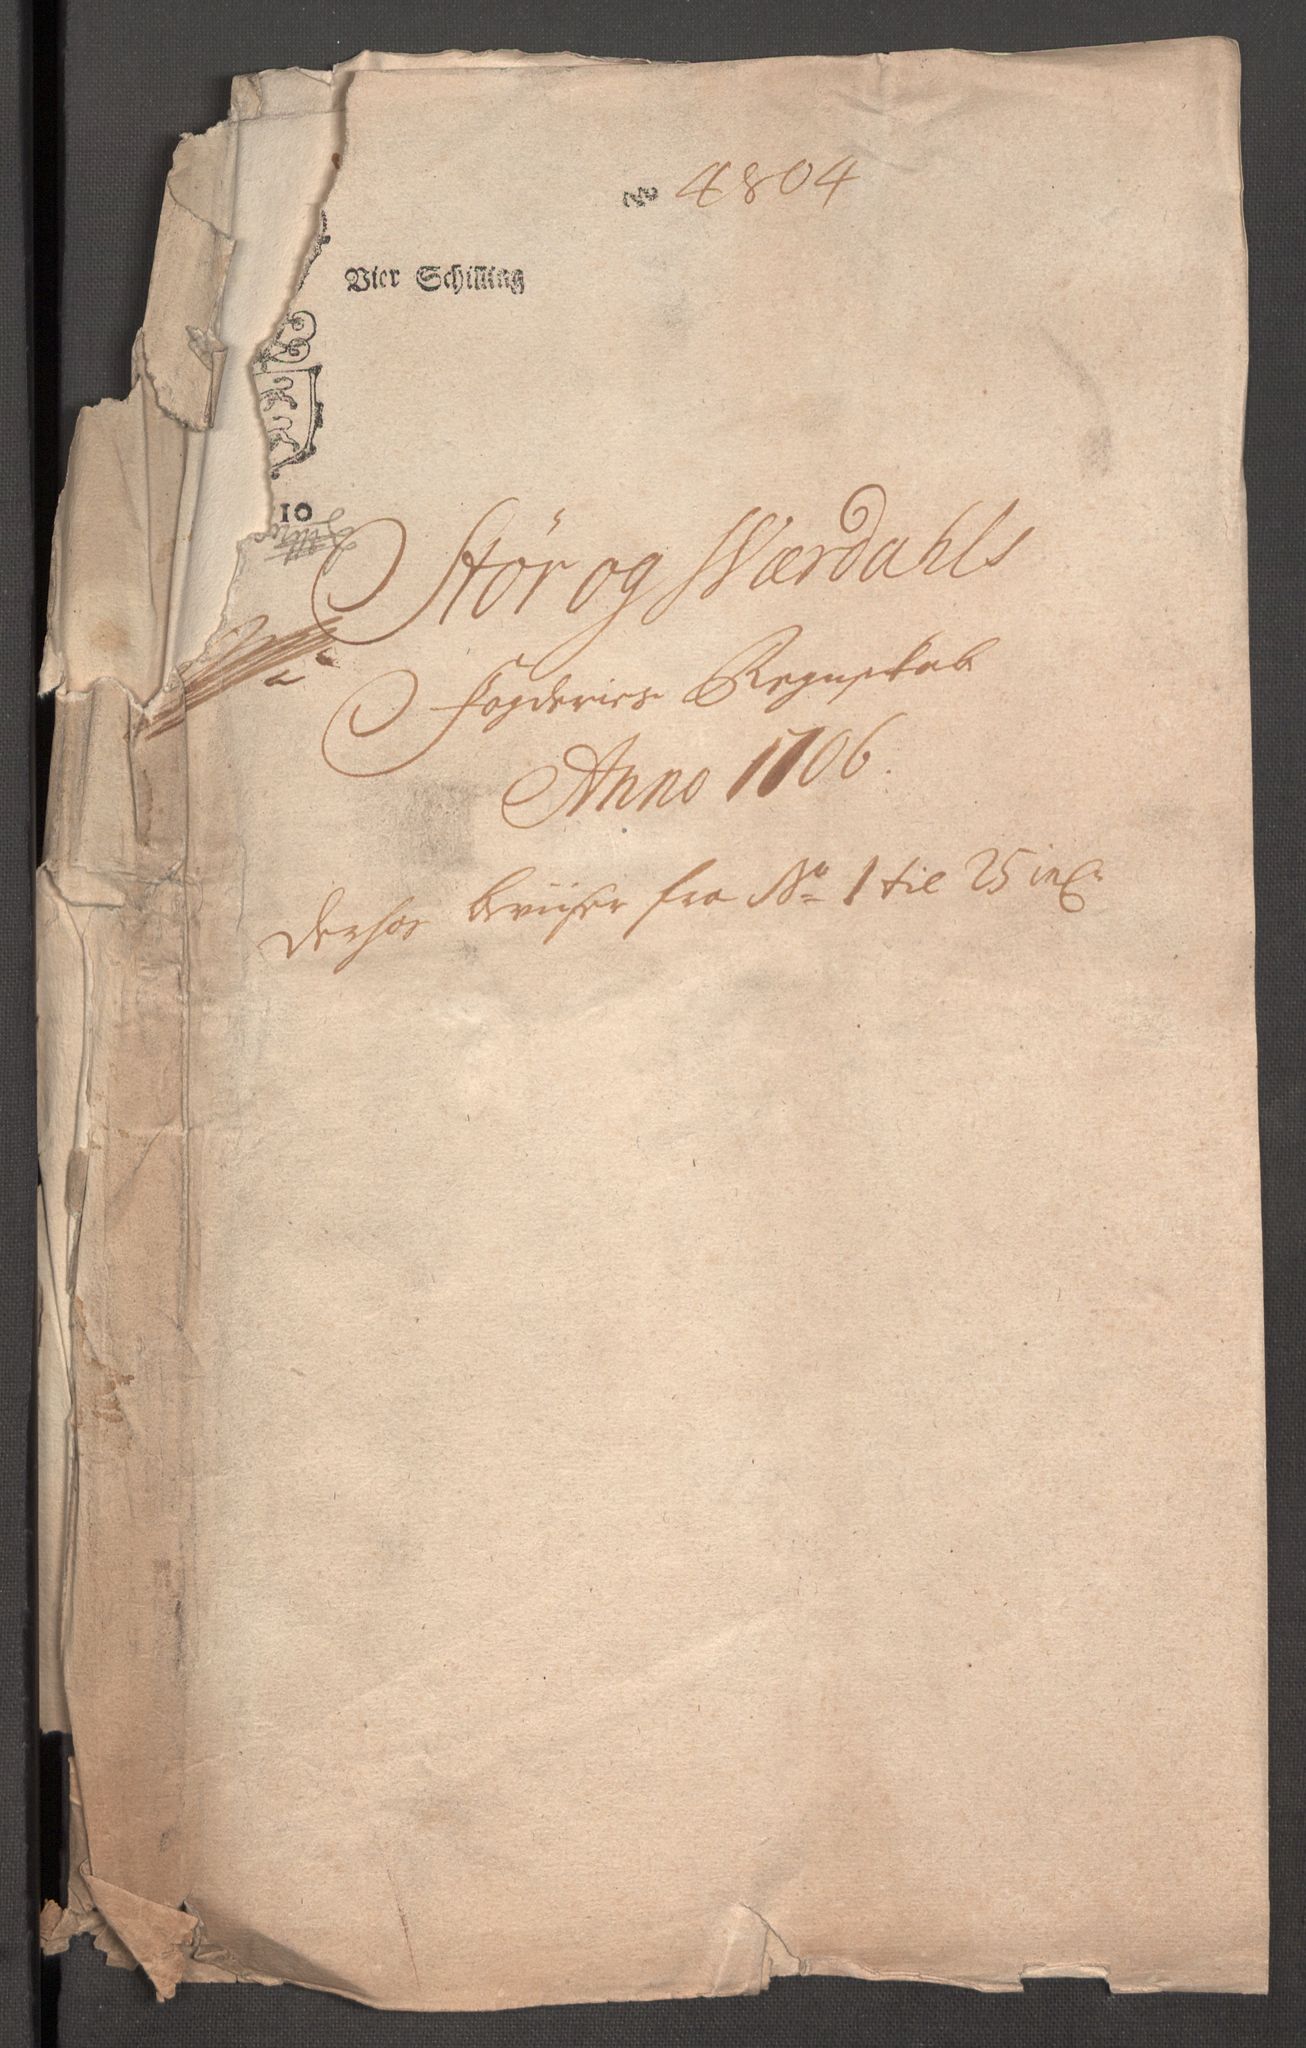 No 4804
Vier Schilling
10
Stør og Wærdahls
Fogderies Regnskab
Anno 1706.
derhos beviiser fra No 1 til 25 incl.